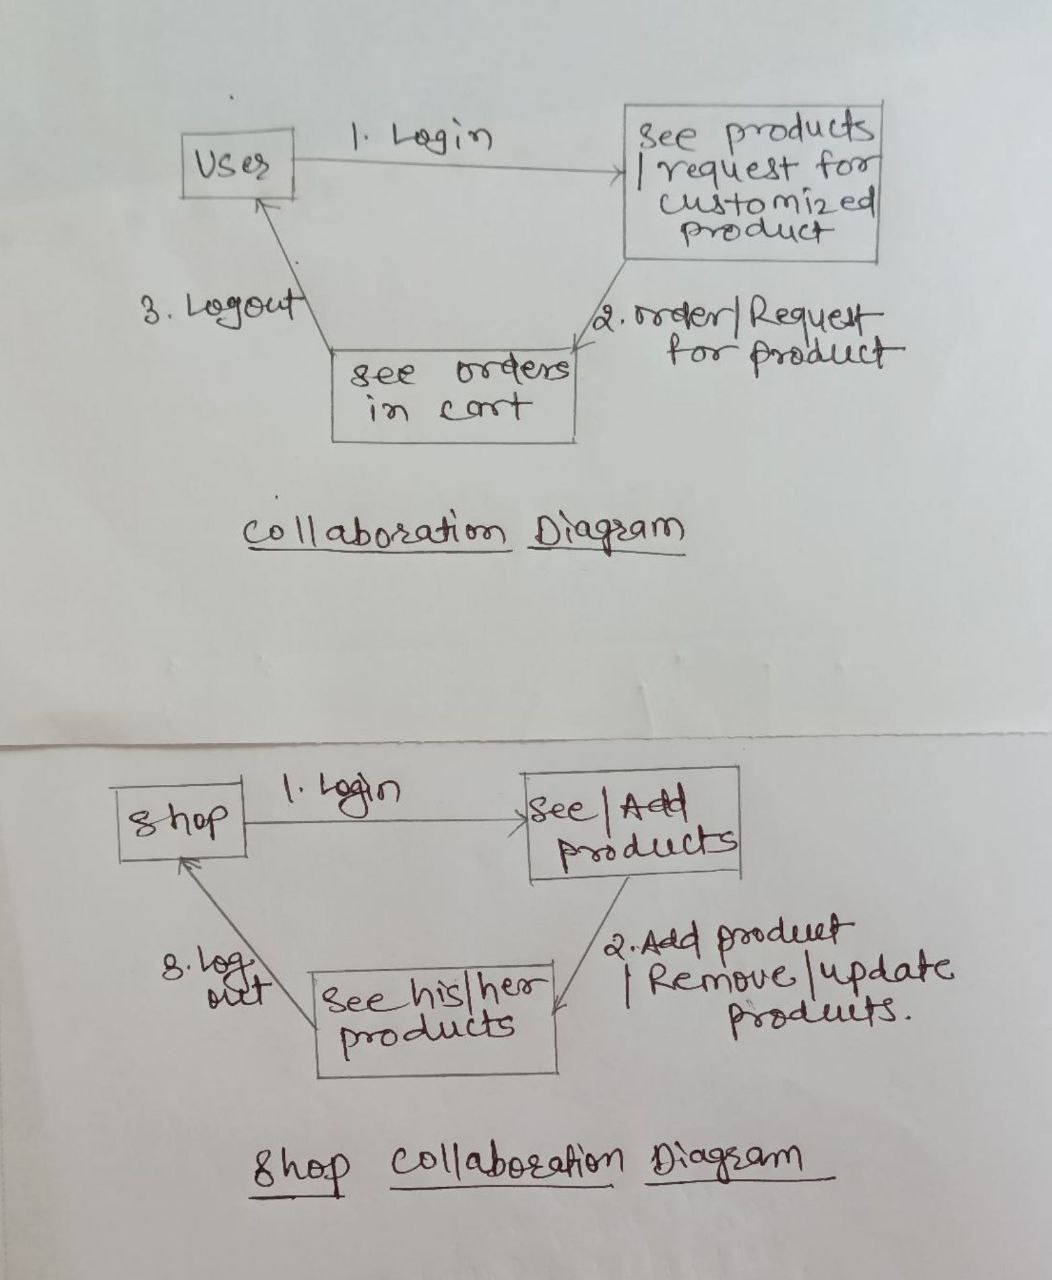 User
1. Login
See products
| request for
customized
product
3. Logout
2. order/Request
for product
see orders
in cart
Collaboration Diagram
Shop
1. Login
See/Add
products
2. Add product
| Remove/update
products.
3. Log
out
See his/her
products
Shop Collaboration Diagram